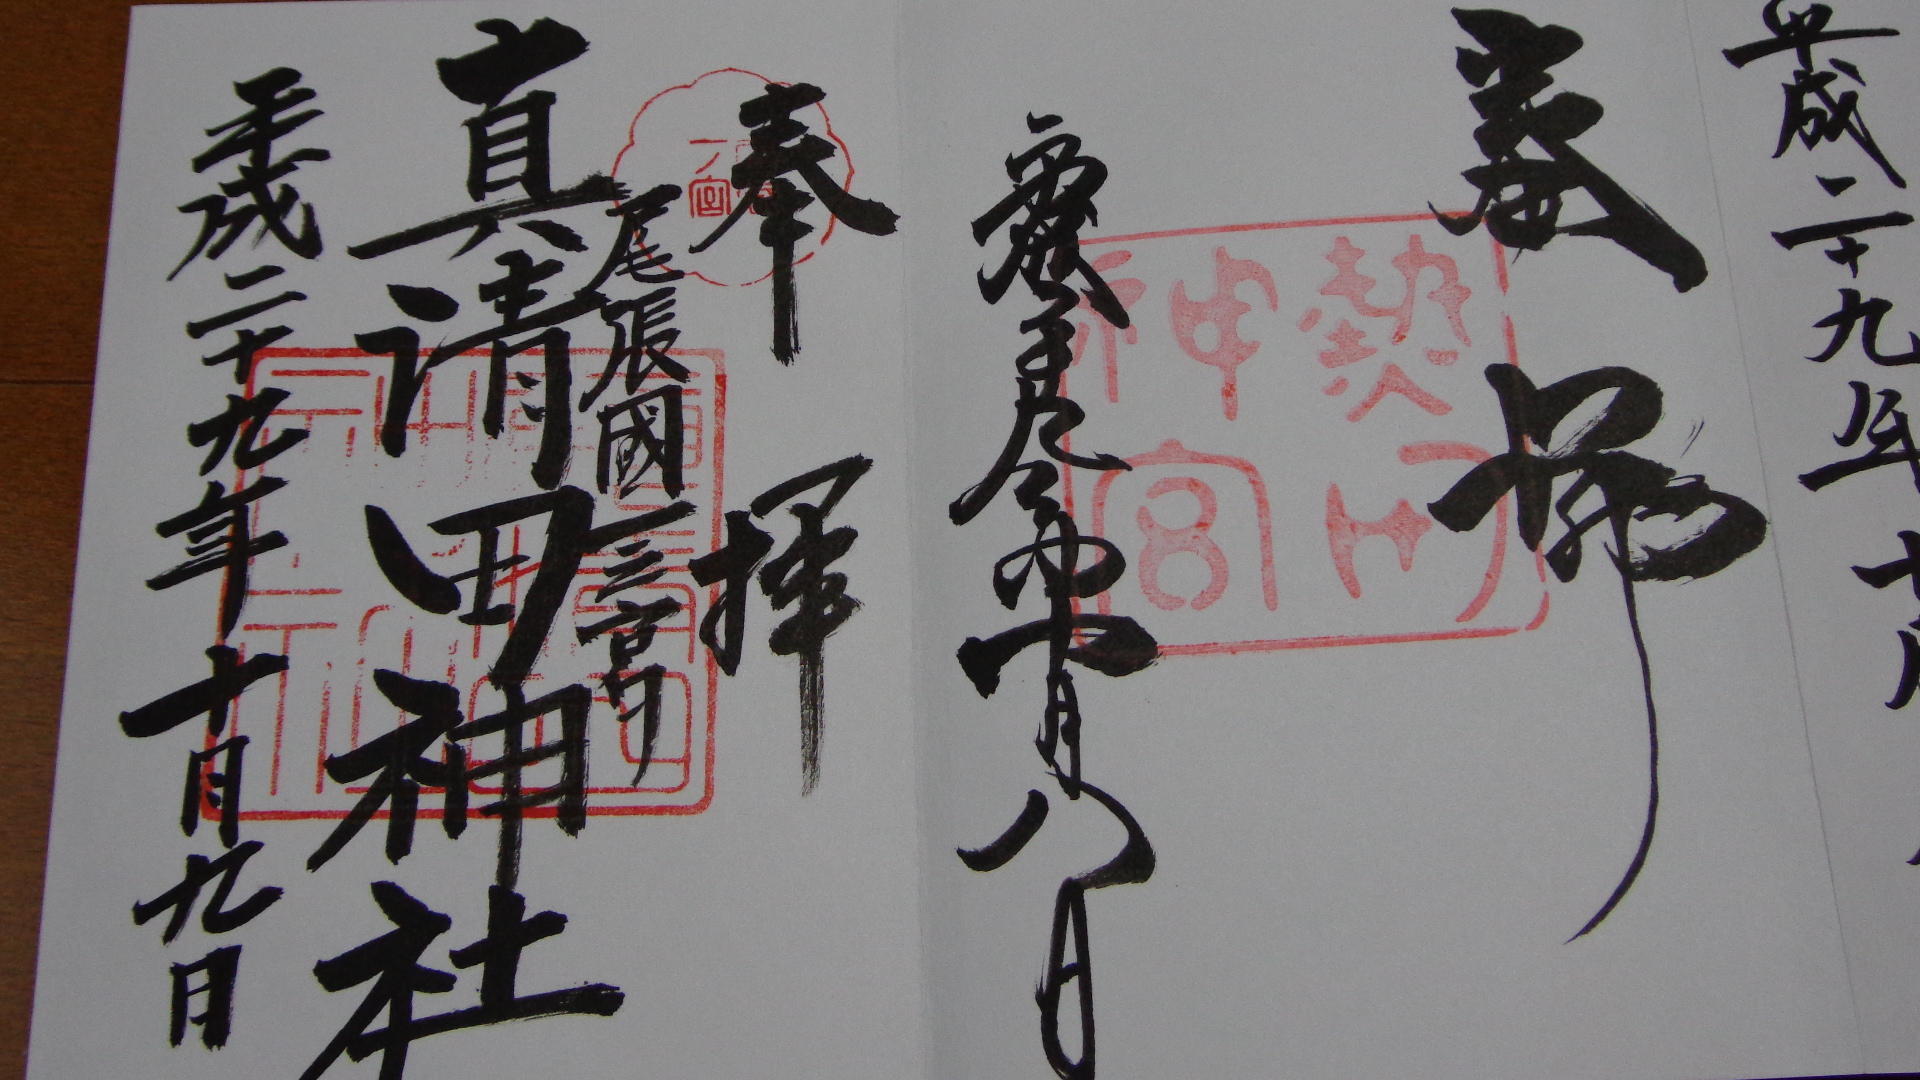 平成二十九年十月
奉拝
熱田神宮
平成二十九年十月八日
奉拝
一宮
尾張國一之宮
真清田神社
平成二十九年十月九日